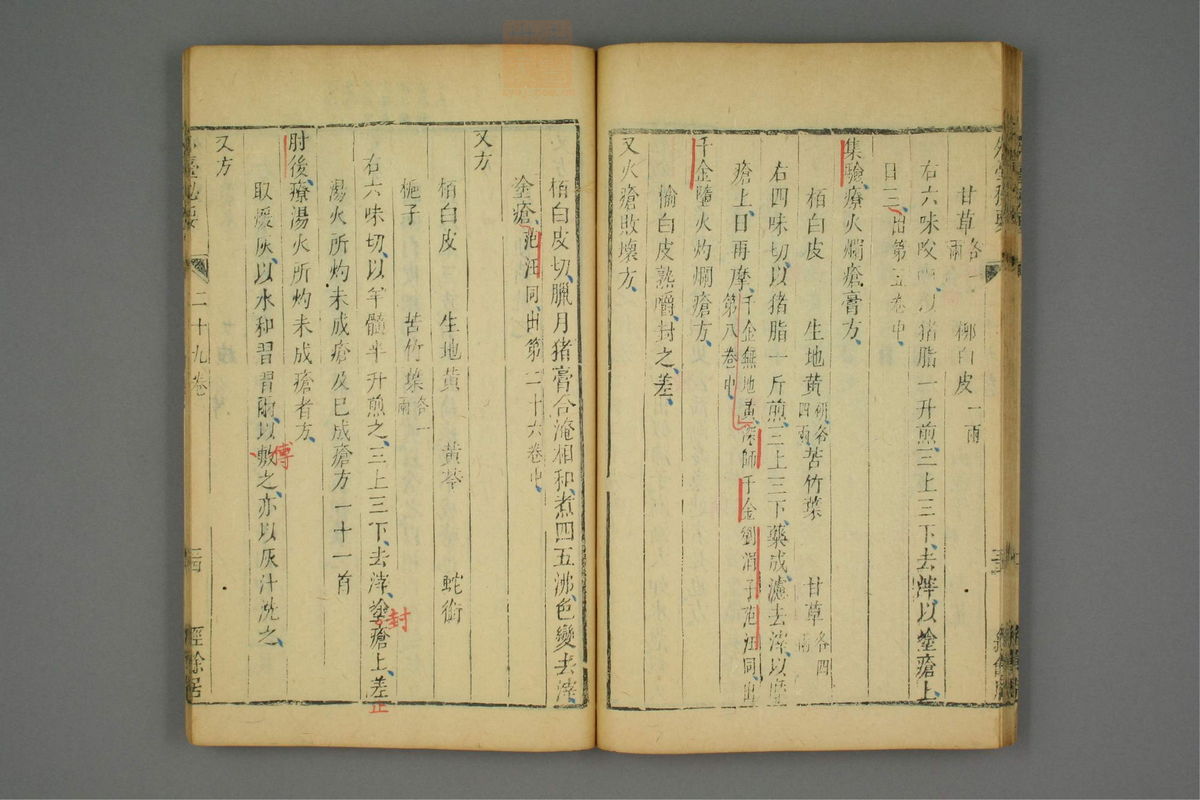 甘草各一兩　柳白皮一兩
右六味㕮咀以猪脂一升煎三上三下去滓以塗瘡上
日三出第五卷中
集驗療火爛瘡膏方
栢白皮　生地黄研各四兩　苦竹葉　甘草各四兩
右四味切以猪脂一斤煎三上三下藥成濾去滓以摩
瘡上日再摩千金無地黄深師千金劉涓子范汪同出第八卷中
千金墮火灼爛瘡方
榆白皮熟嚼封之差
又火瘡敗壞方
栢白皮切臘月猪膏合淹相和煮四五沸色變去滓
塗瘡范汪同出第二十六卷中
又方
栢白皮　生地黄　黄芩　蛇銜
梔子　苦竹葉各一兩
右六味切以羊髓半升煎之三上三下去滓塗瘡上差
封
正
湯火所灼未成瘡及已成瘡方一十一首
肘後療湯火所灼未成瘡者方
取煖灰以水和習習爾以敷之亦以灰汁洗之
傅
又方
外臺秘要
二十九卷
三四
經餘居